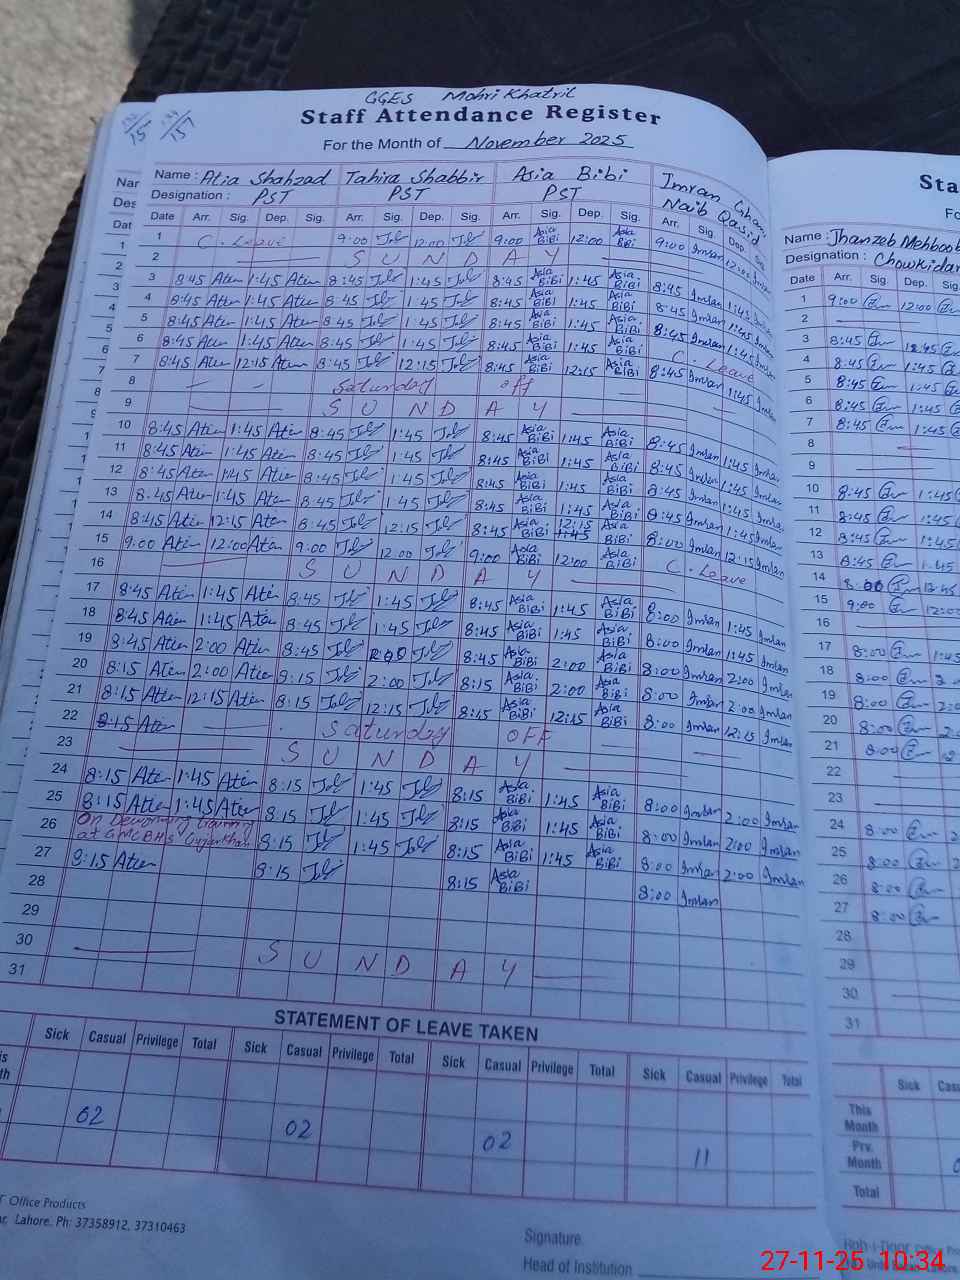 GGES Mohri Khatril
Staff Attendance Register
For the Month of November 2025
Name : Atia Shahzad Tahira Shabbir Asia Bibi Imran Ghani
Designation : PST PST PST Naib Qasid
Date Arr. Sig. Dep. Sig. Arr. Sig. Dep. Sig. Arr. Sig. Dep. Sig. Arr. Sig. Dep. Sig.
1 C. Leave 9:00 12:00 9:00 Asia BiBi 12:00 Asia BiBi 9:00 Imran 12:00
2 S U N D A Y
3 8:45 Atia 1:45 Atia 8:45 1:45 8:45 Asia BiBi 1:45 Asia BiBi 8:45 Imran 1:45 Imran
4 8:45 Atia 1:45 Atia 8:45 1:45 8:45 Asia BiBi 1:45 Asia BiBi 8:45 Imran 1:45 Imran
5 8:45 Atia 1:45 Atia 8:45 1:45 8:45 Asia BiBi 1:45 Asia BiBi 8:45 Imran 1:45 Imran
6 8:45 Atia 1:45 Atia 8:45 1:45 8:45 Asia BiBi 1:45 Asia BiBi C. Leave
7 8:45 Atia 12:15 Atia 8:45 12:15 8:45 Asia BiBi 12:15 Asia BiBi 8:45 Imran 1:45 Imran
8 Saturday off
9 S U N D A Y
10 8:45 Atia 1:45 Atia 8:45 1:45 8:45 Asia BiBi 1:45 Asia BiBi 8:45 Imran 1:45 Imran
11 8:45 Atia 1:45 Atia 8:45 1:45 8:45 Asia BiBi 1:45 Asia BiBi 8:45 Imran 1:45 Imran
12 8:45 Atia 1:45 Atia 8:45 1:45 8:45 Asia BiBi 1:45 Asia BiBi 8:45 Imran 1:45 Imran
13 8:45 Atia 1:45 Atia 8:45 1:45 8:45 Asia BiBi 1:45 Asia BiBi 8:45 Imran 1:45 Imran
14 8:45 Atia 12:15 Atia 8:45 12:15 8:45 Asia BiBi 12:15 1:45 Asia BiBi 8:00 Imran 12:15 Imran
15 9:00 Atia 12:00 Atia 9:00 12:00 9:00 Asia BiBi 12:00 Asia BiBi C. Leave
16 S U N D A Y
17 8:45 Atia 1:45 Atia 8:45 1:45 8:45 Asia BiBi 1:45 Asia BiBi 8:00 Imran 1:45 Imran
18 8:45 Atia 1:45 Atia 8:45 1:45 8:45 Asia BiBi 1:45 Asia BiBi 8:00 Imran 1:45 Imran
19 8:45 Atia 2:00 Atia 8:45 2:00 8:45 Asia BiBi 2:00 Asia BiBi 8:00 Imran 2:00 Imran
20 8:15 Atia 2:00 Atia 8:15 2:00 8:15 Asia BiBi 2:00 Asia BiBi 8:00 Imran 2:00 Imran
21 8:15 Atia 12:15 Atia 8:15 12:15 8:15 Asia BiBi 12:15 Asia BiBi 8:00 Imran 12:15 Imran
22 8:15 Atia Saturday OFF
23 S U N D A Y
24 8:15 Atia 1:45 Atia 8:15 1:45 8:15 Asia BiBi 1:45 Asia BiBi 8:00 Imran 2:00 Imran
25 8:15 Atia 1:45 Atia 8:15 1:45 8:15 Asia BiBi 1:45 Asia BiBi 8:00 Imran 2:00 Imran
26 On Deworming training at GMCBHS Gujarkhan 8:15 1:45 8:15 Asia BiBi 1:45 Asia BiBi 8:00 Imran 2:00 Imran
27 8:15 Atia 8:15 8:15 Asia BiBi 8:00 Imran
28
29
30 S U N D A Y
31
STATEMENT OF LEAVE TAKEN
Sick Casual Privilege Total Sick Casual Privilege Total Sick Casual Privilege Total Sick Casual Privilege Total
02 02 02 11
Office Products
Lahore. Ph: 37358912, 37310463
Signature
Head of Institution
Sta
Name : Jhanzeb Mehboob
Designation : Chowkidar
Date Arr. Sig. Dep. Sig.
1 9:00 12:00
2
3 8:45 12:45
4 8:45 1:45
5 8:45 1:45
6 8:45 1:45
7 8:45 1:45
8
9
10 8:45 1:45
11 8:45 1:45
12 8:45 1:45
13 8:45 1:45
14 8:00 12:45
15 9:00 12:00
16
17 8:00 1:45
18 8:00
19 8:00
20 8:00
21 8:00
22
23
24 8:00
25 8:00
26 8:00
27 8:00
28
29
30
31
Sick
This Month
Prv. Month
Total
27-11-25 10:34